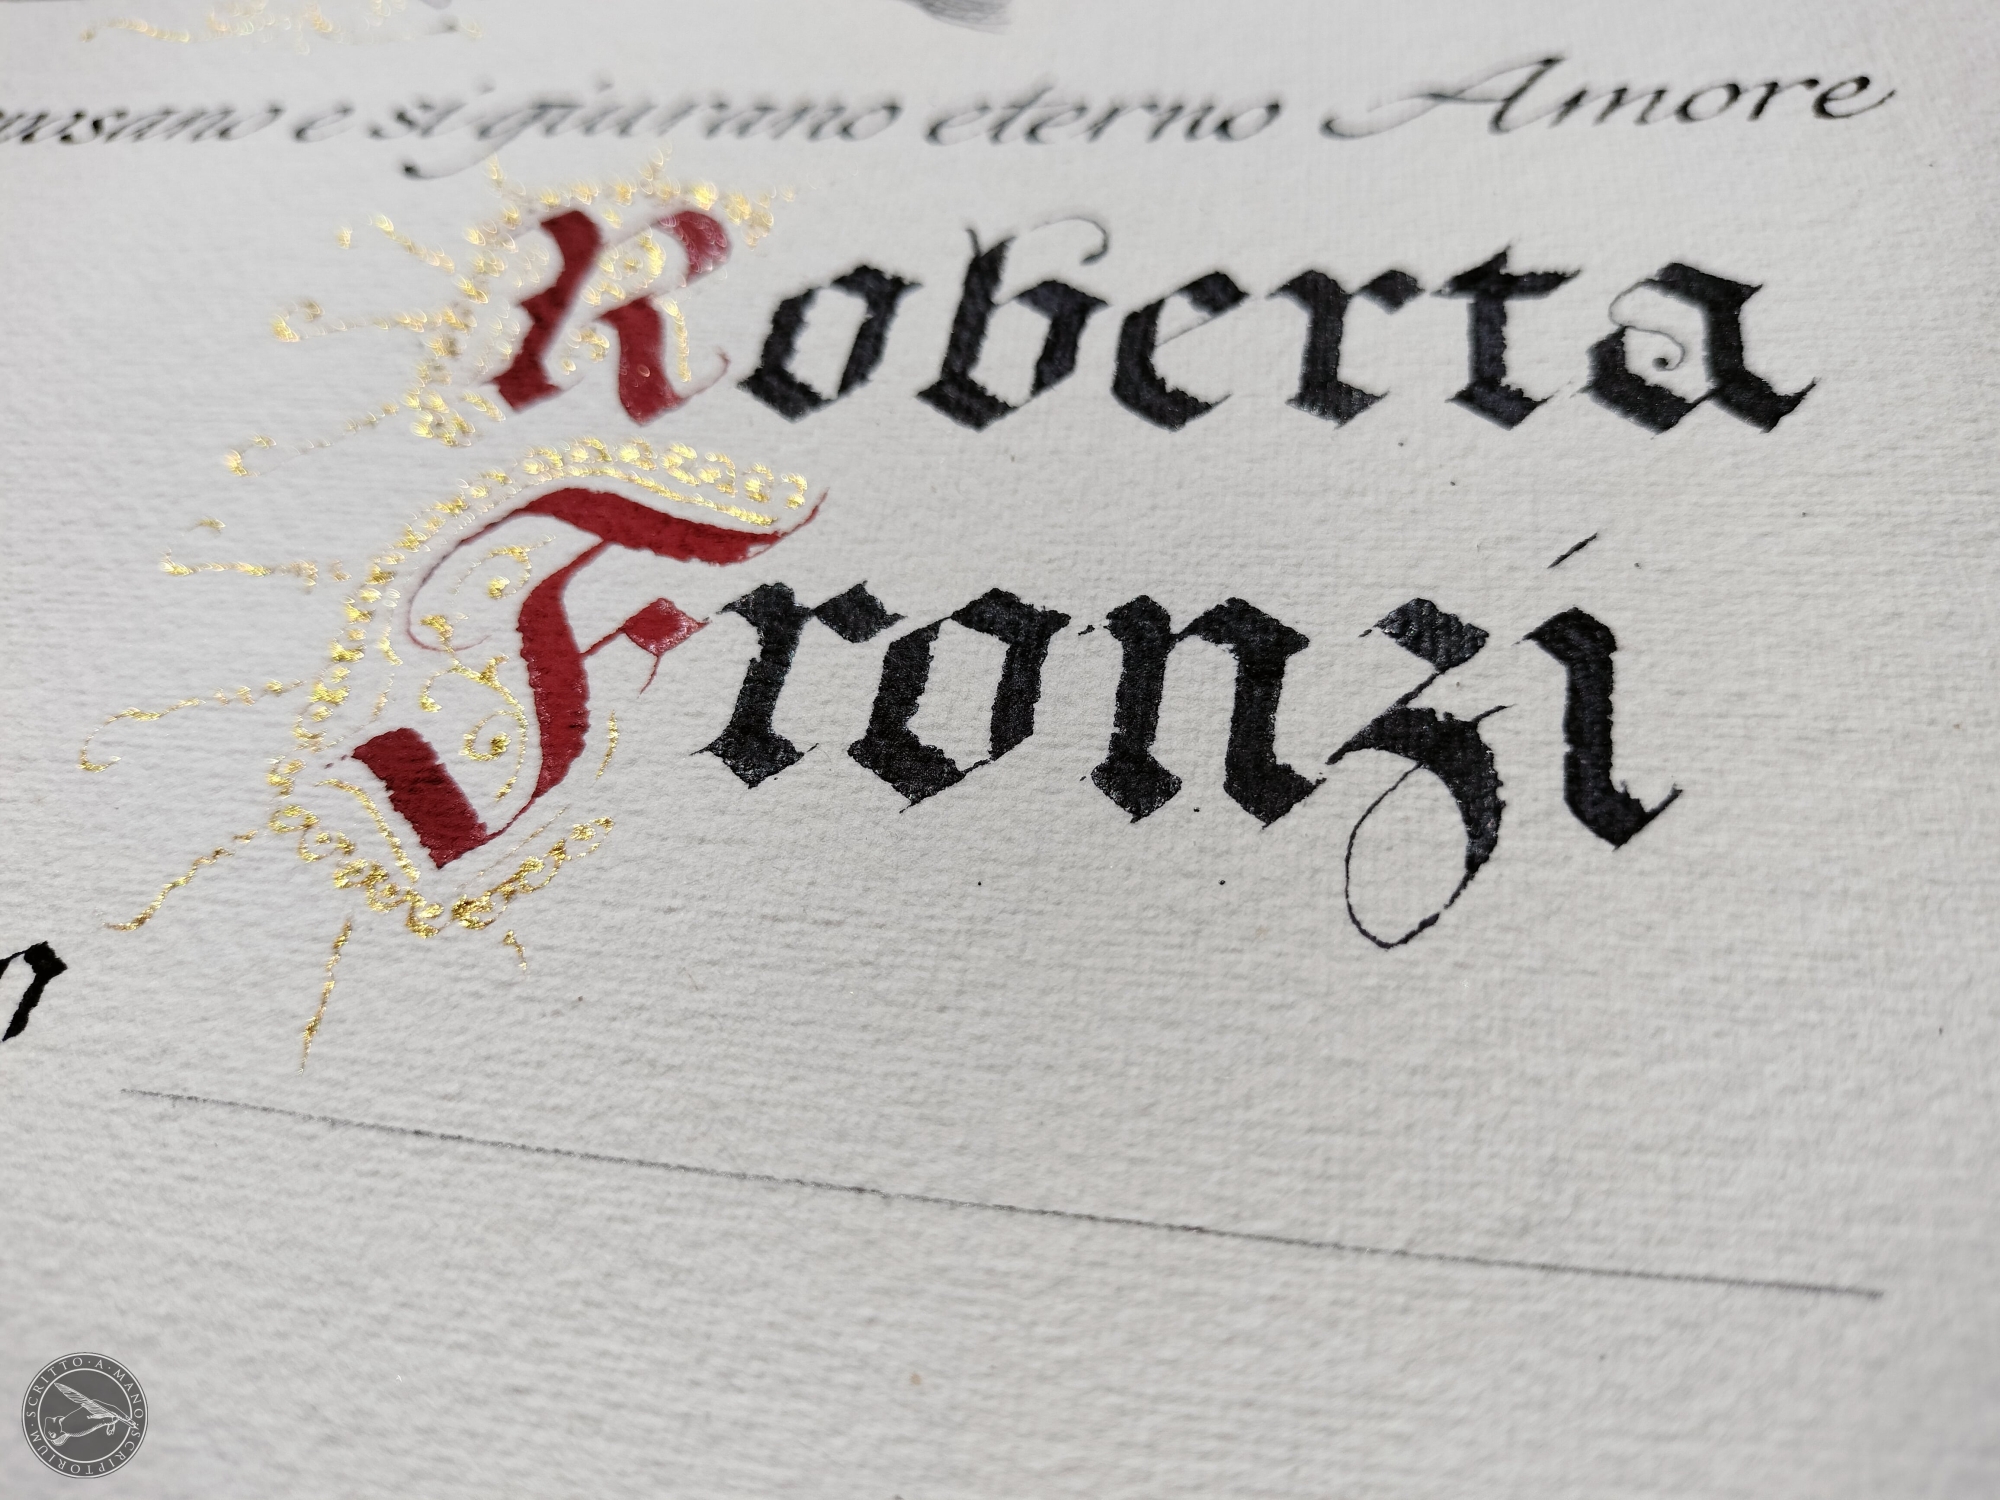 e si giurano eterno Amore
Roberta
Fronzi
SCRITTO · A · MANO · SCRIPTORIUM ·